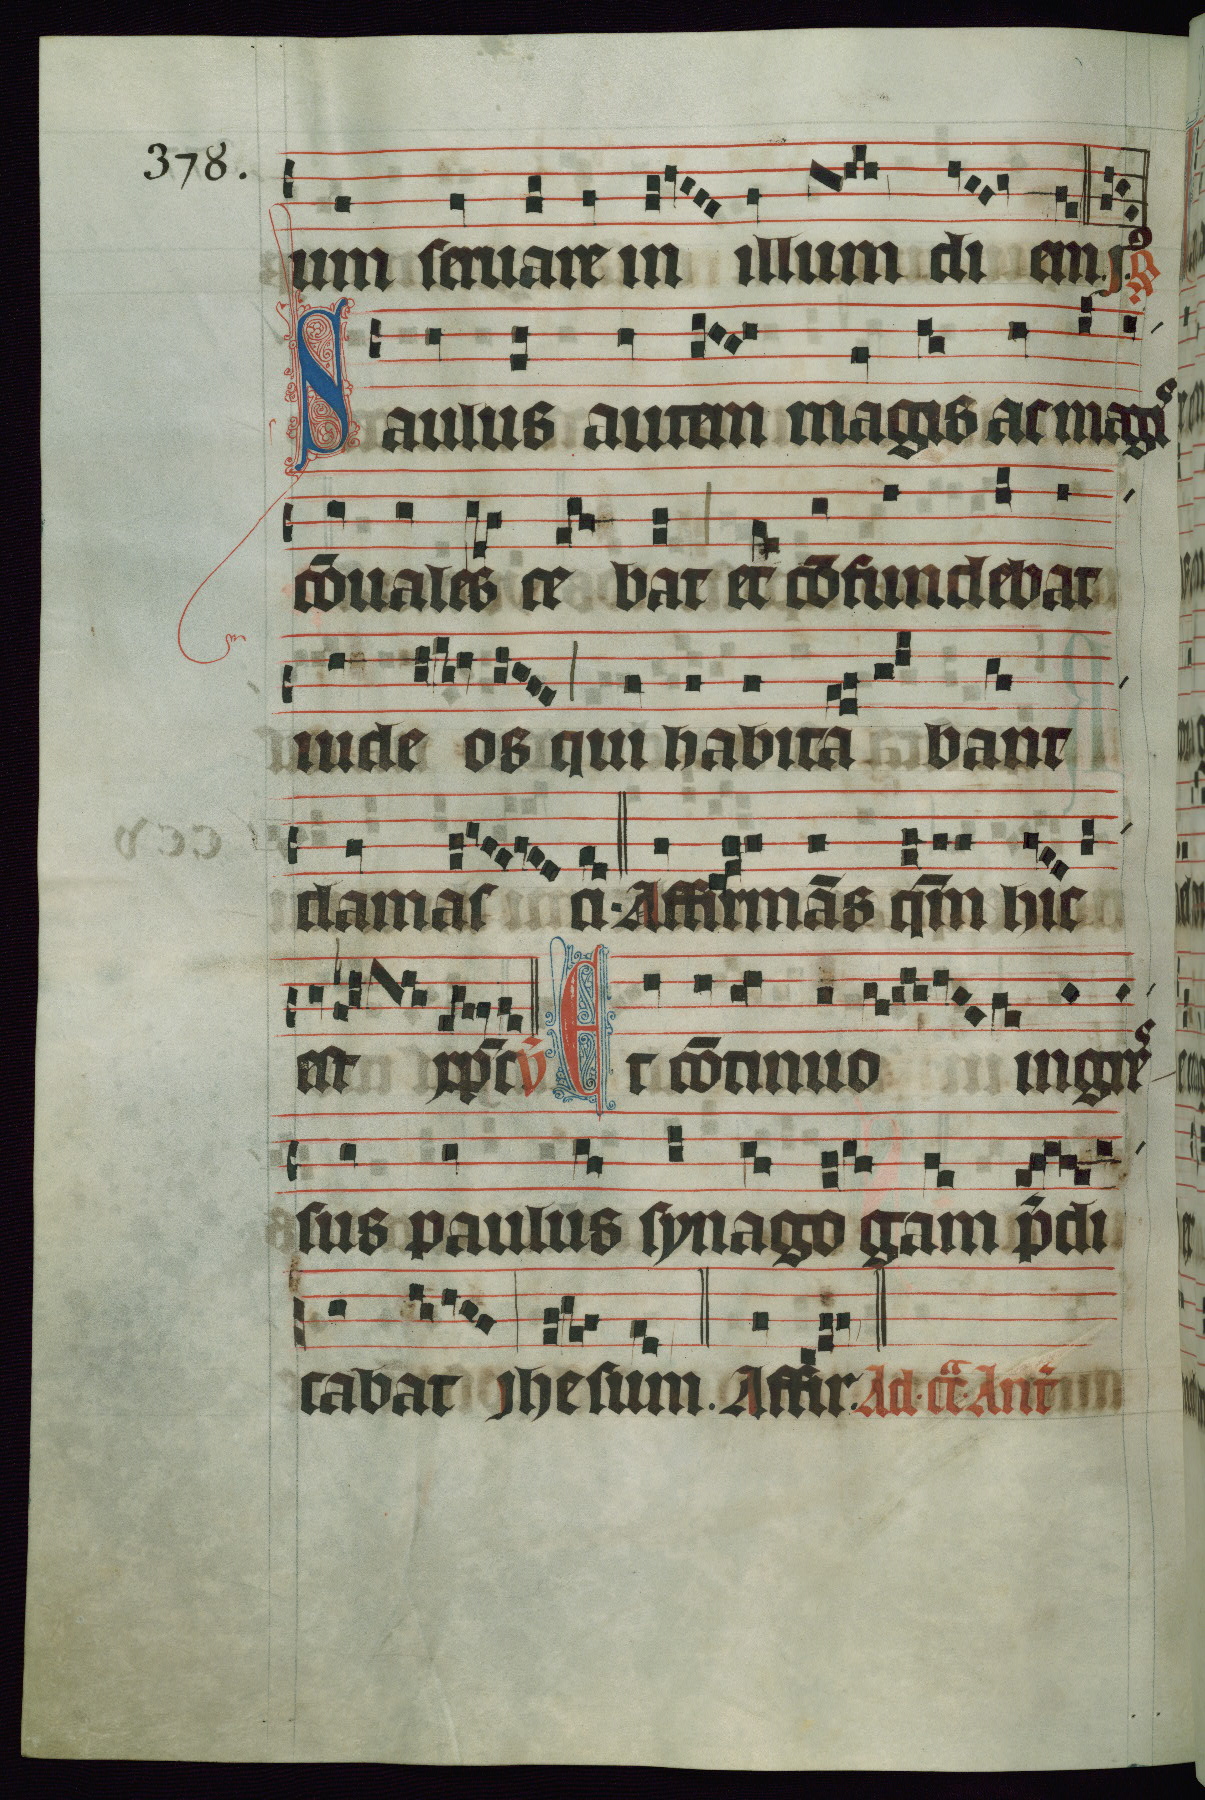 378.
um seruare in illum di em. j. R
Saulus autem magis ac magis
c̄oualesce bat et c̄ofundebat
iude os qui habita bant
damas ci. Affirmās qm̄ hic
est xp̄c v̄ Et c̄otinuo ingres
sus paulus synago gam p̄di
cabat jhesum. Affir. Ad. ct̄. Ant̄